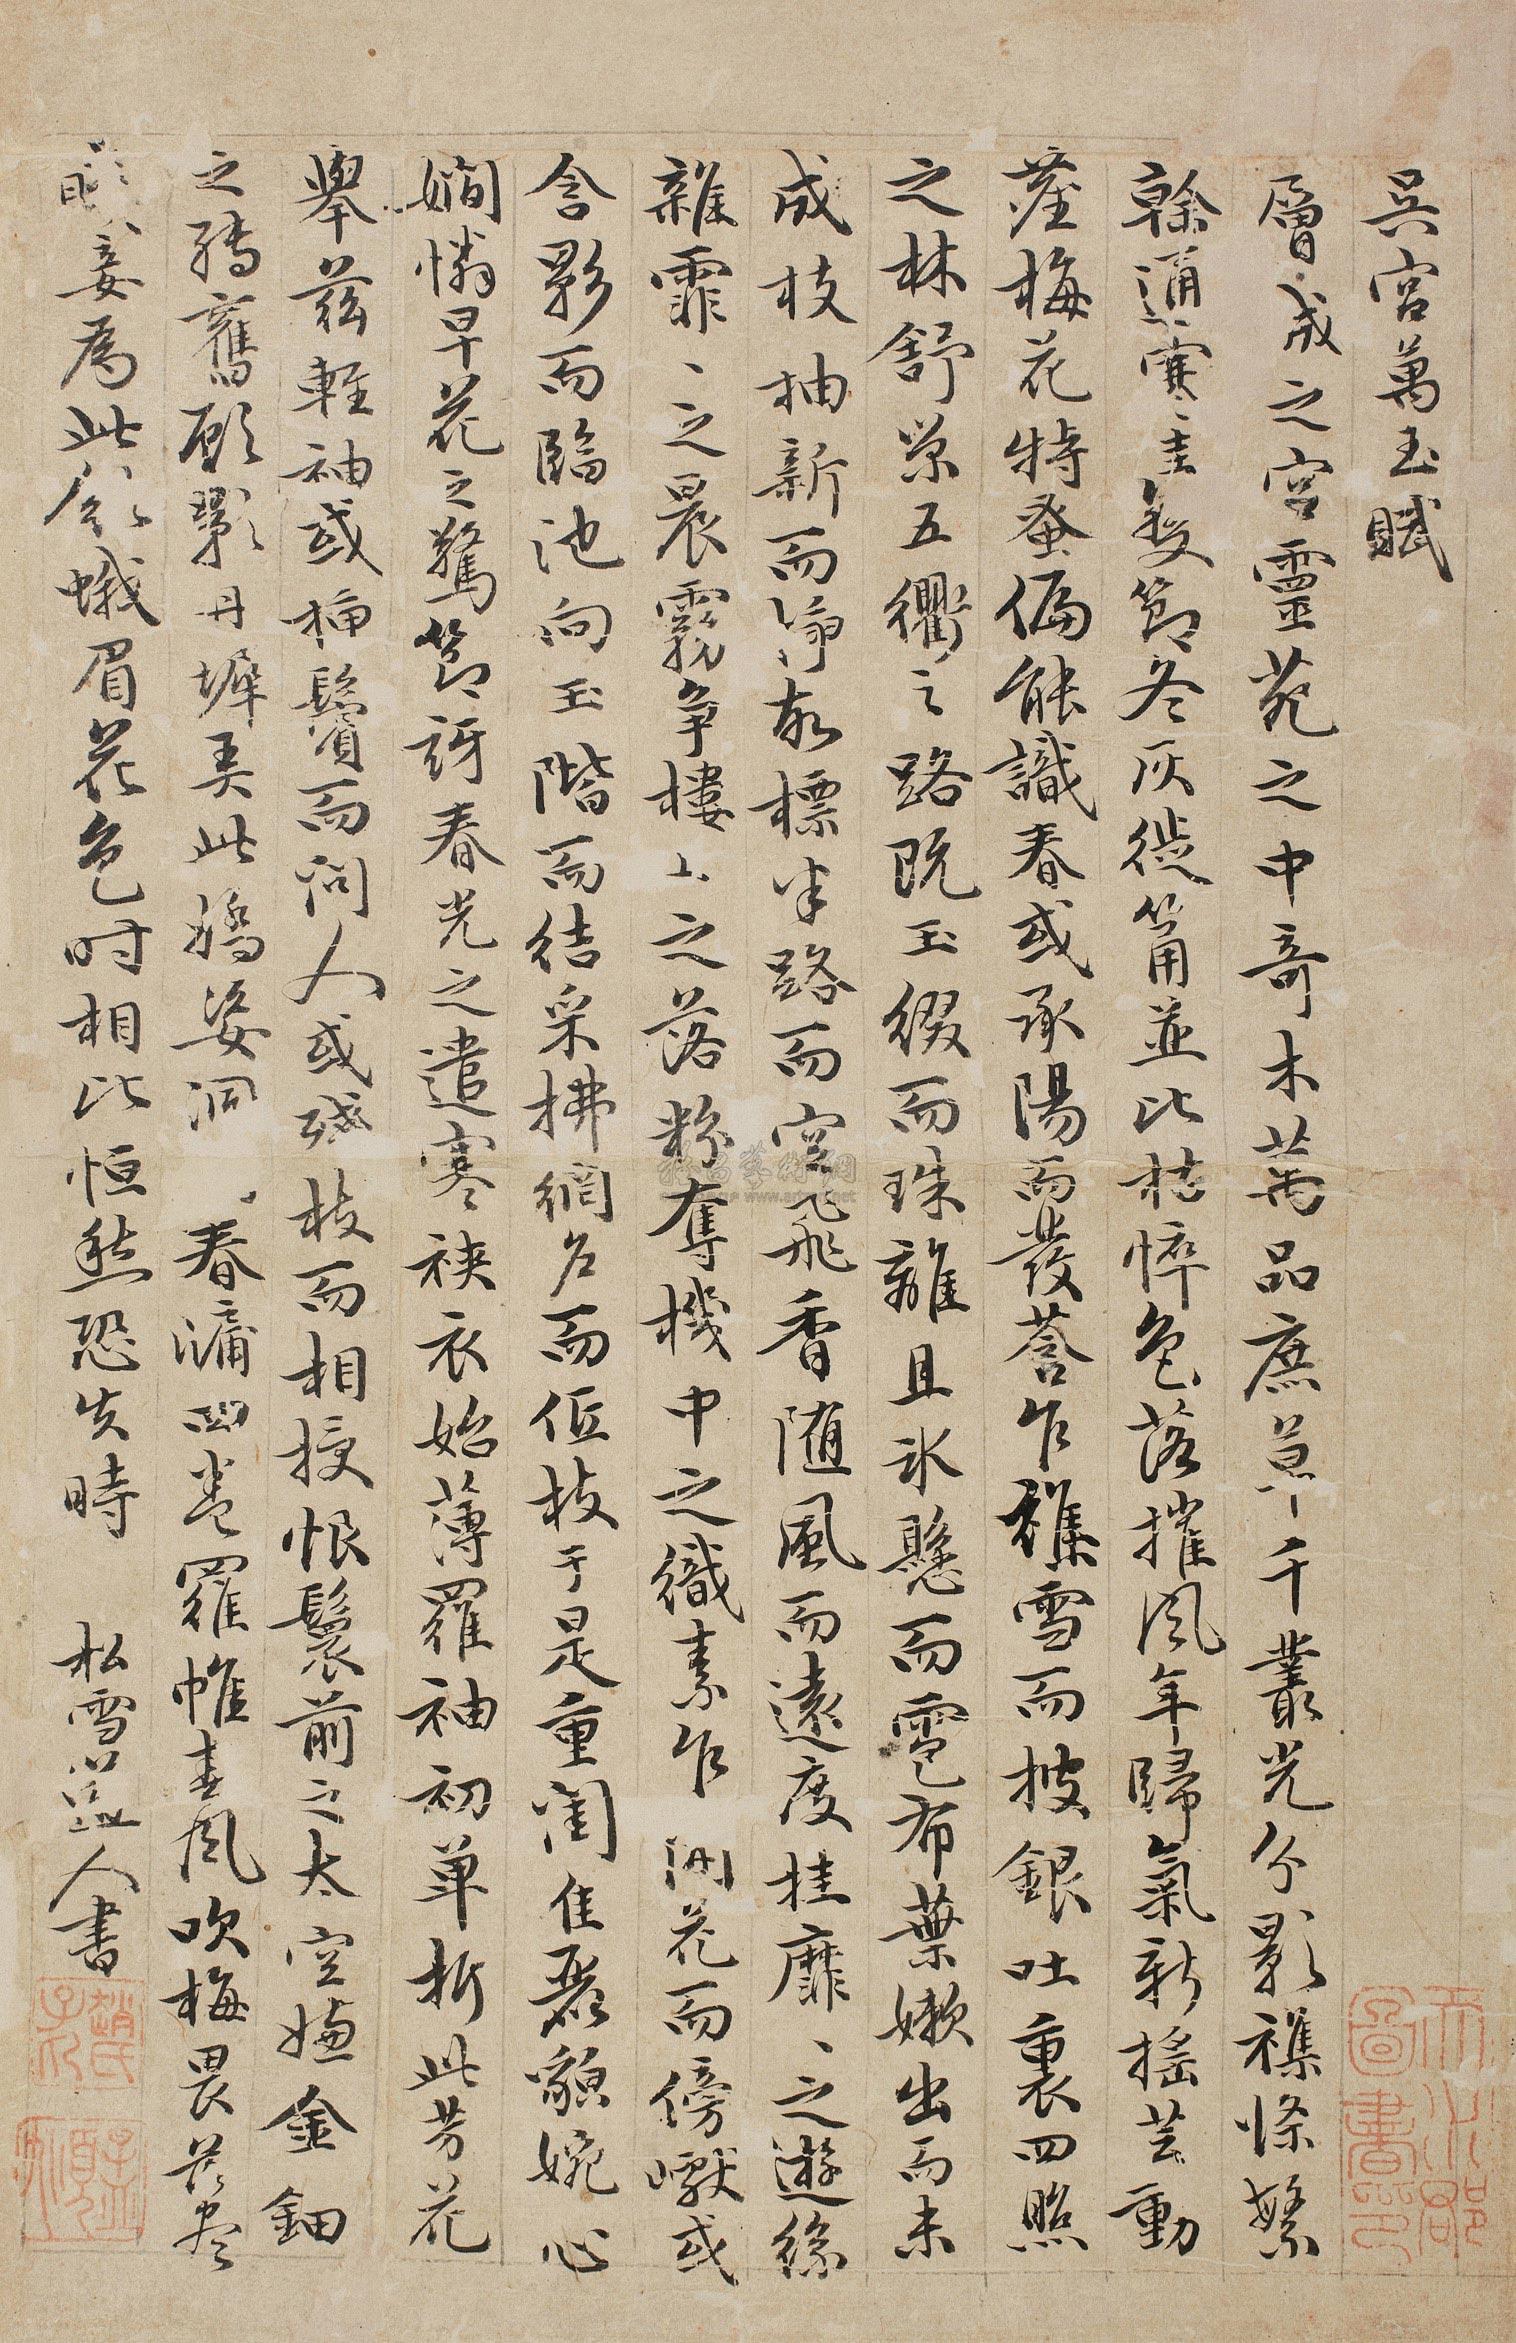 吴宫萬玉賦
層成之宮靈苑之中奇木萬品庶草千叢光分影襍條繁
榦通寒圭變節冬灰徙筩並比枯悴色落摧風年歸氣新揺芸動
塵梅花特蚤偏能識春或承陽而發荅乍襍雪而披銀吐裏四照
之林舒榮五衢之路既玉綴而珠離且氷懸而雹布葉嫰出而未
成枝抽新而
標半路而空飛香随風而遠度挂靡、之遊絲
雜霏、之晨霧争樓上之落粉奪機中之織素乍開花而傍巘或
含影而臨池向玉階而結采拂網戶而低枝于是重閨佳麗貌婉心
嫺憐早花之驚節訝春光之遣寒裌衣始薄羅袖初单折此芳花
舉兹輕袖或插鬢而问人或殘枝而相授恨鬟前之太空嫌金鈿
之轉舊顧影丹墀弄此嬌姿洞 春牖四卷羅帷春風吹梅畏落盡
賤妾爲此歛蛾眉花色时相比恒愁恐失時 松雪道人書
趙氏子昂
天水郡圖書印